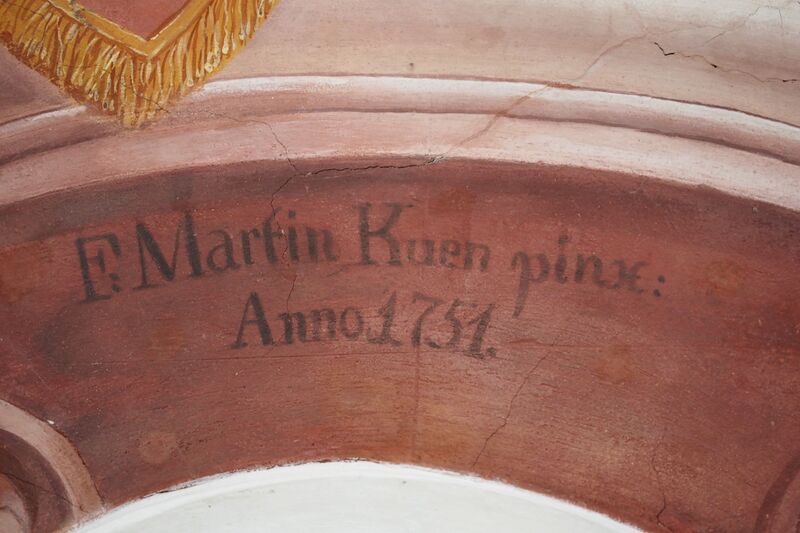 F: Martin Kuen pinx:
Anno 1751.